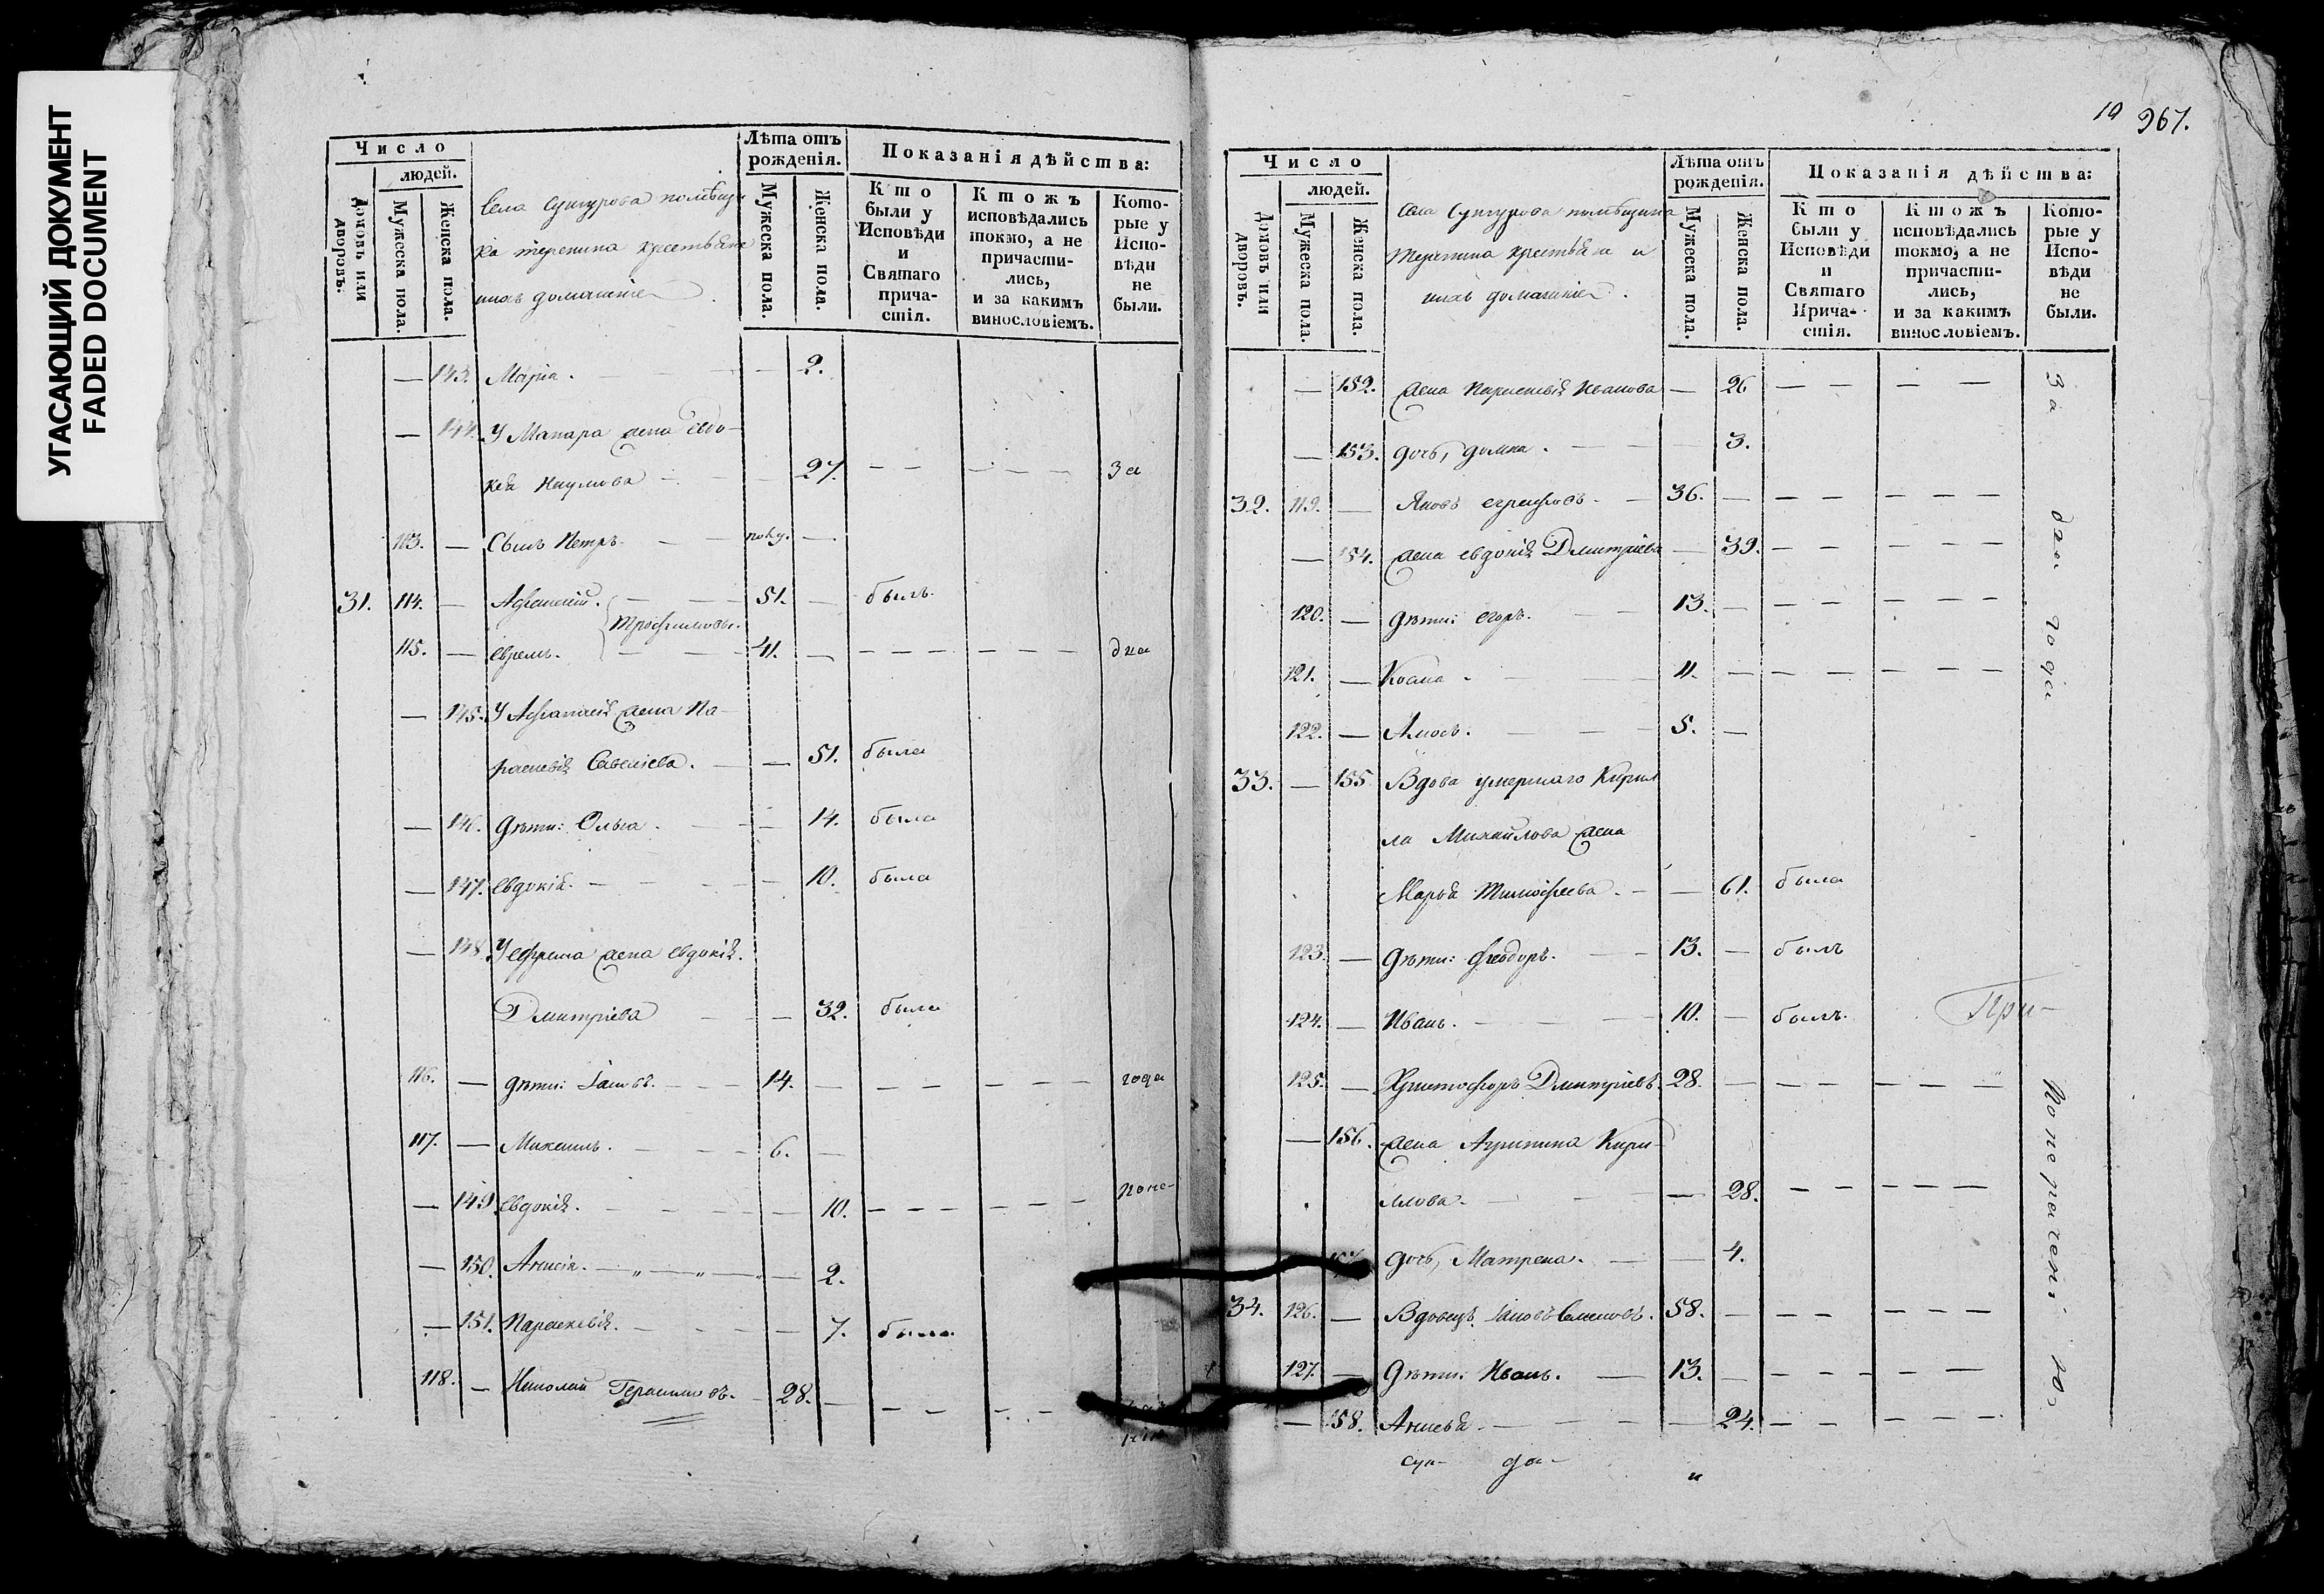 УГАСАЮЩИЙ ДОКУМЕНТ
FADED DOCUMENT
Число
людей.
Домовъ или дворовъ.
Мужеска пола.
Женска пола.
Села Сунгурова помѣщи
ка Терепина крестьяне
ихъ домашніе
Лѣта отъ рожденія.
Мужеска пола.
Женска пола.
Показанія дѣйства:
Кто были у Исповѣди и Святаго причастія.
Ктожъ исповѣдались токмо, а не причастились, и за какимъ винословіемъ.
Которые у Исповѣди не были.
— 143. Марія. — 2.
— 144. У Макара жена Евдо-
кія Наумова — 27. — — — — — За
113. — Сынъ Петръ. — полу. —
31. 114. — Афанасій. — 51. — былъ
Трофимовы.
115. — Ефремъ. — 41. — — — — — — — два
— 145. У Афанасія жена Па-
раскевія Савельева. — 51. была
— 146. Дѣти: Ольга. — 14. была
— 147. Евдокія. — 10. была
— 148. У Ефрема жена Евдокія.
Дмитріева — 32. была
116. — дѣти: Іаковъ. — 14. — — — — — — года
117. — Михаилъ. — 6. —
— 149. Евдокія. — 10. — — — — — — по не-
— 150. Анисія. — „ — „ — 2.
— 151. Параскевія. — 7. была
118. — Николай Герасимовъ. — 28. — — — — —
19 967.
Число
людей.
Домовъ или дворовъ.
Мужеска пола.
Женска пола.
Села Сунгурова помѣщика
Терепина крестьяне и
ихъ домашніе.
Лѣта отъ рожденія.
Мужеска пола.
Женска пола.
Показанія дѣйства:
Кто были у Исповѣди и Святаго Причастія.
Ктожъ исповѣдались токмо, а не причастились, и за какимъ винословіемъ.
Которые у Исповѣди не были.
— 152. жена Параскевія Иванова — 26 — — — — За
— 153. дочь, Домна. — 3.
32. 119. — Яковъ — 36. — — — — — —
— 154. жена Евдокія Дмитріева — 39. — — — — — два
120. — дѣти: Егоръ. — 13. — — — — — — года
121. — Козма. — 11. — — — — — —
122. — Амосъ. — 5. —
33. — 155 Вдова умершаго Кирил
ла Михайлова жена
Марья Тимофеева. — 61. была
123. — дѣти: Феодоръ. — 13. — былъ
124. — Иванъ. — 10. — былъ. При-
125. — Христофоръ Дмитріевъ. 28. — — — — — — По нераченію.
— 156. жена Агрипина Кири-
ллова. — 28. — — — — —
157. дочь, Матрена. — 4.
34. 126. — Вдовецъ Іаковъ Семеновъ. 58. — — — — — —
127. — Дѣти: Иванъ. — 13. — — — — — —
— 158. Анисья — 24. — — — — —